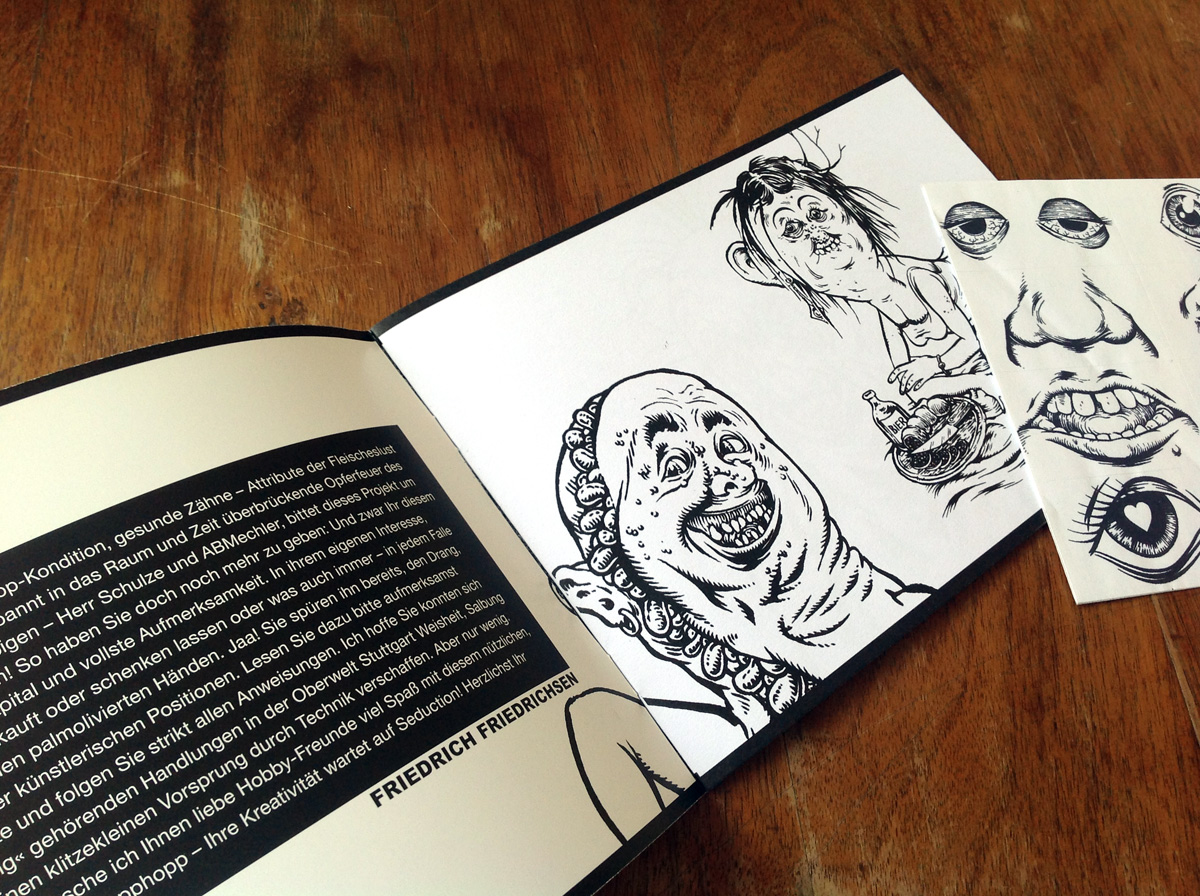 op-Kondition, gesunde Zähne – Attribute der Fleischeslust
bannt in das Raum und Zeit überbrückende Opferfeuer des
igen – Herr Schulze und ABMechler, bittet dieses Projekt um
n! So haben Sie doch noch mehr zu geben: Und zwar Ihr diesem
pital und vollste Aufmerksamkeit. In ihrem eigenen Interesse,
kauft oder schenken lassen oder was auch immer – in jedem Falle
en palmolivierten Händen. Jaa! Sie spüren ihn bereits, den Drang,
er künstlerischen Positionen. Lesen Sie dazu bitte aufmerksamst
e und folgen Sie strikt allen Anweisungen. Ich hoffe Sie konnten sich
ig“ gehörenden Handlungen in der Oberwelt Stuttgart Weisheit, Salbung
inen klitzekleinen Vorsprung durch Technik verschaffen. Aber nur wenig.
sche ich Ihnen liebe Hobby-Freunde viel Spaß mit diesem nützlichen,
opphopp – Ihre Kreativität wartet auf Seduction! Herzlichst Ihr
FRIEDRICH FRIEDRICHSEN
BIER